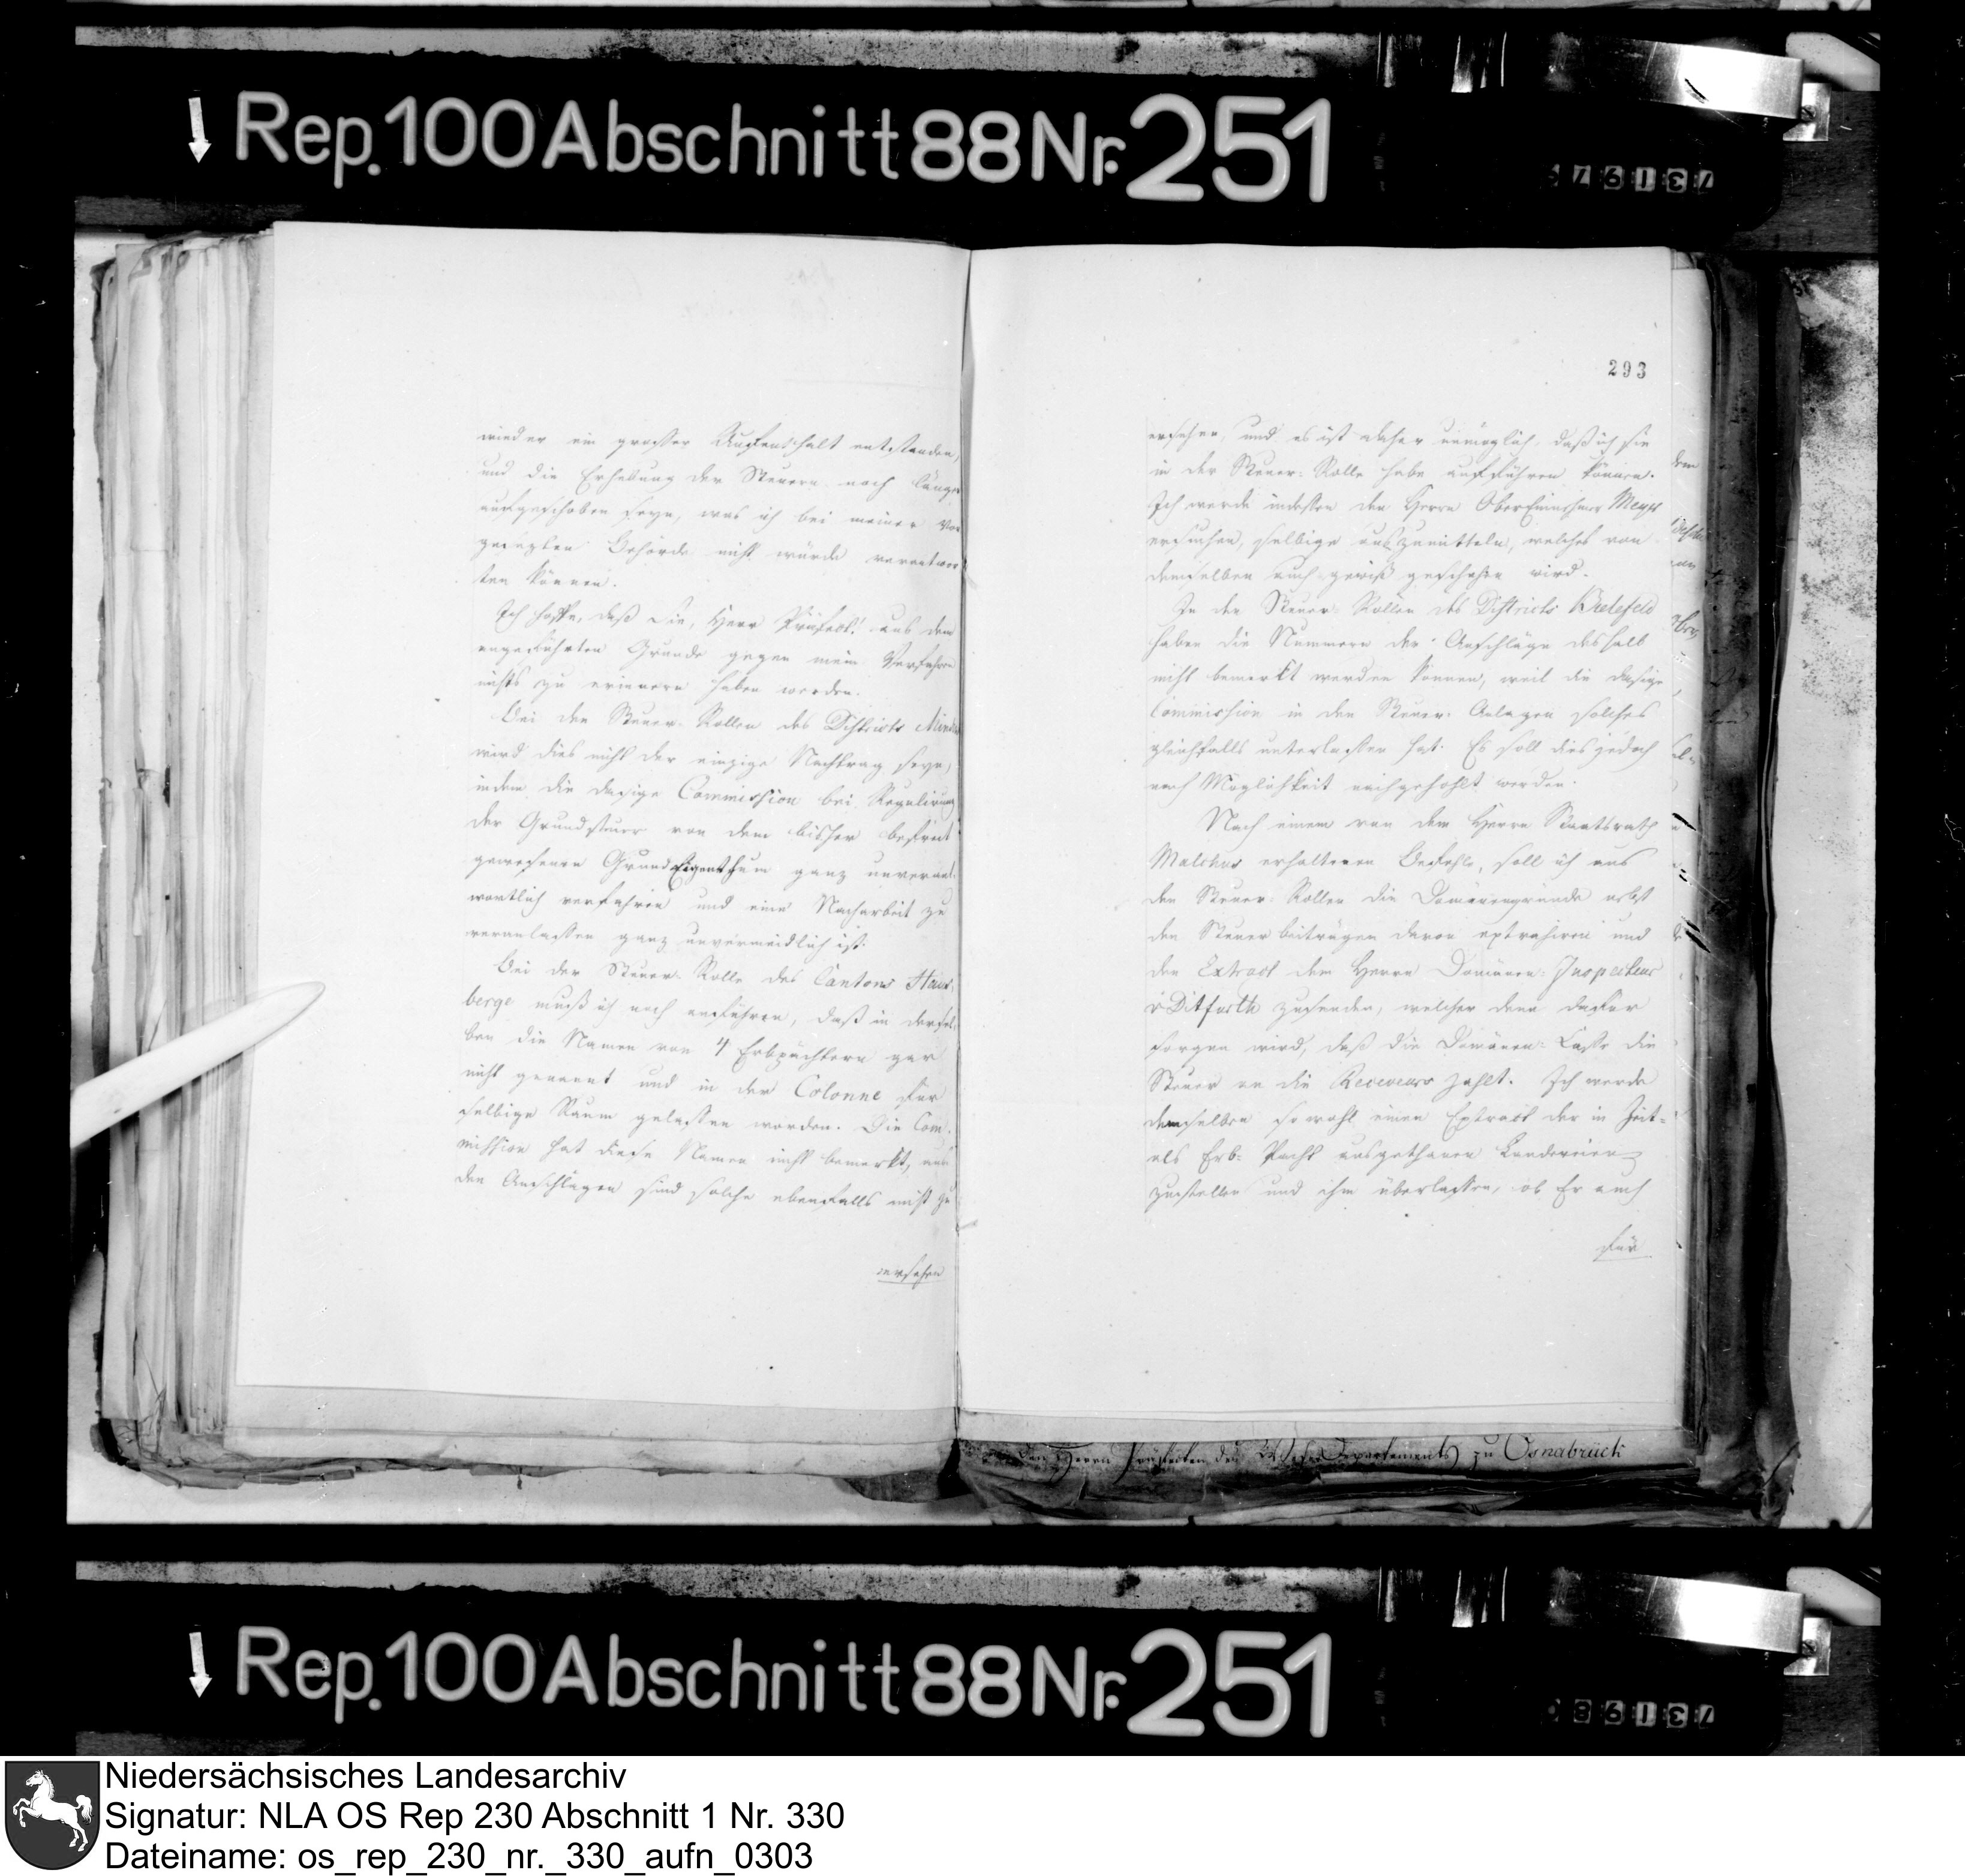 Rep. 100 Abschnitt 88 Nr. 251
wieder ein grosser Aufenthalt entstanden,
und die Erhebung der Steuern noch länger
aufgeschoben seyn, was ich bei meiner vor
gesezten Behörde nicht würde verantwor
ten können.
Ich hoffe, daß Sie, Herr Präfect! aus dem
angeführten Grunde gegen mein Verfahren
nichts zu erinnern haben werden.
Bei den Steuer-Rollen des Districts Minden
wird dies nicht der einzige Nachtrag seyn,
indem die dasige Commission bei Regulirung
der Grundsteuer von dem bisher befreit
gewesenen GrundEigenthum ganz unverant-
wortlich verfahren und eine Nacharbeit zu
veranlassen ganz unvermeidlich ist.
Bei der Steuer-Rolle des Cantons Haus-
berge muß ich noch anführen, daß in dersel-
ben die Namen von 4 Erbpächtern gar
nicht genannt und in der Colonne für
selbige Raum gelassen worden. Die Com-
mission hat diese Namen nicht bemerkt, aus
den Anschlägen sind solche ebenfalls nicht zu
ersehen
293
ersehen, und es ist daher unmöglich, daß ich sie
in der Steuer-Rolle habe aufführen können.
Ich werde indessen den Herrn OberEinnehmer Meyer
ersuchen, selbige auszumitteln, welches von
demselben auch gewiß geschehen wird.
In den Steuer-Rollen des Districts Bielefeld
haben die Nummern der Anschläge deshalb
nicht bemerkt werden können, weil die dasige
Commission in den Steuer-Anlagen solches
gleichfalls unterlassen hat. Es soll dies jedoch
nach Möglichkeit nachgeholt werden.
Nach einem von dem Herrn Staatsrath
Malchus erhaltenen Befehle, soll ich aus
den Steuer-Rollen die Domänengründe nebst
den Steuerbeiträgen davon extrahiren und
den Extract dem Herrn Domänen-Inspecteur
v Ditfurth zusenden, welcher dann dafür
sorgen wird, daß die Domänen-Casse die
Steuer an die Receveurs zahlt. Ich werde
demselben sowohl einen Extract der in Zeit-
als Erb-Pacht ausgethanen Ländereien
zustellen und ihm überlassen, ob Er auch
für
den Herrn Präfecten des Weser Departements zu Osnabrück
Rep. 100 Abschnitt 88 Nr. 251
Niedersächsisches Landesarchiv
Signatur: NLA OS Rep 230 Abschnitt 1 Nr. 330
Dateiname: os_rep_230_nr._330_aufn_0303